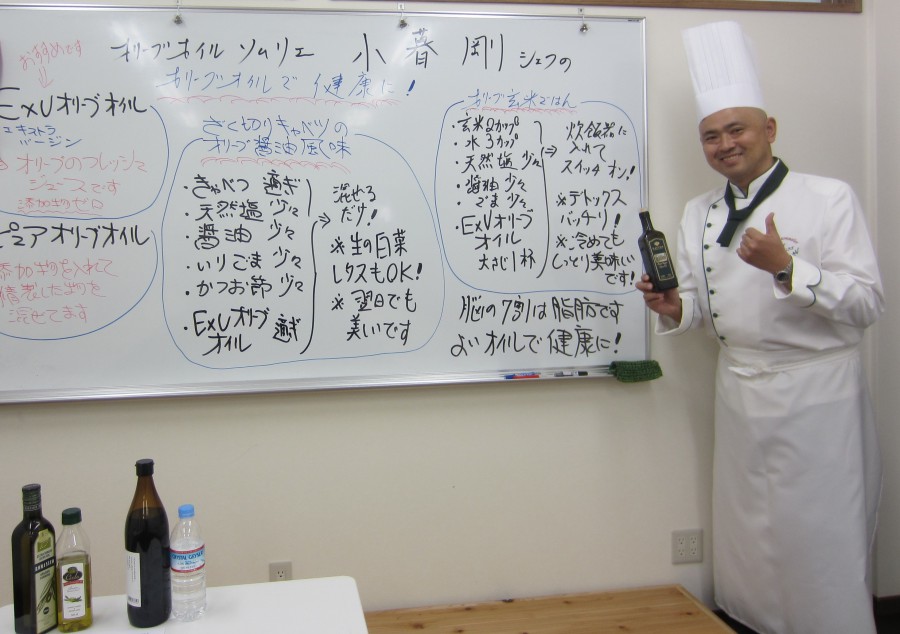 オリーブオイル ソムリエ 小暮 剛 シェフの
オリーブオイルで 健康に!
おすすめです
ExVオリーブオイル
エキストラ
バージン
オリーブのフレッシュ
ジュースです
添加物ゼロ
ピュアオリーブオイル
添加物を入れて
精製した物を
混ぜてます
ざく切りキャベツの
オリーブ醤油風味
・きゃべつ 適ぎ
・天然塩 少々
・醤油 少々
・いりごま 少々
・かつお節 少々
・ExVオリーブ
オイル 適ぎ
⇒ 混ぜる
だけ!
※生の白菜
レタスもOK!
※翌日でも
美いです
オリーブ玄米ごはん
・玄米2カップ
・水 3カップ
・天然塩 少々
・醤油 少々
・ごま 少々
・ExVオリーブ
オイル
大さじ1杯
⇒ 炊飯器に
入れて
スイッチ オン!
※デトックス
バッチリ!
※冷めても
しっとり美味しい
です!
脳の7割は脂肪です
よいオイルで健康に!
CRYSTAL GEYSER